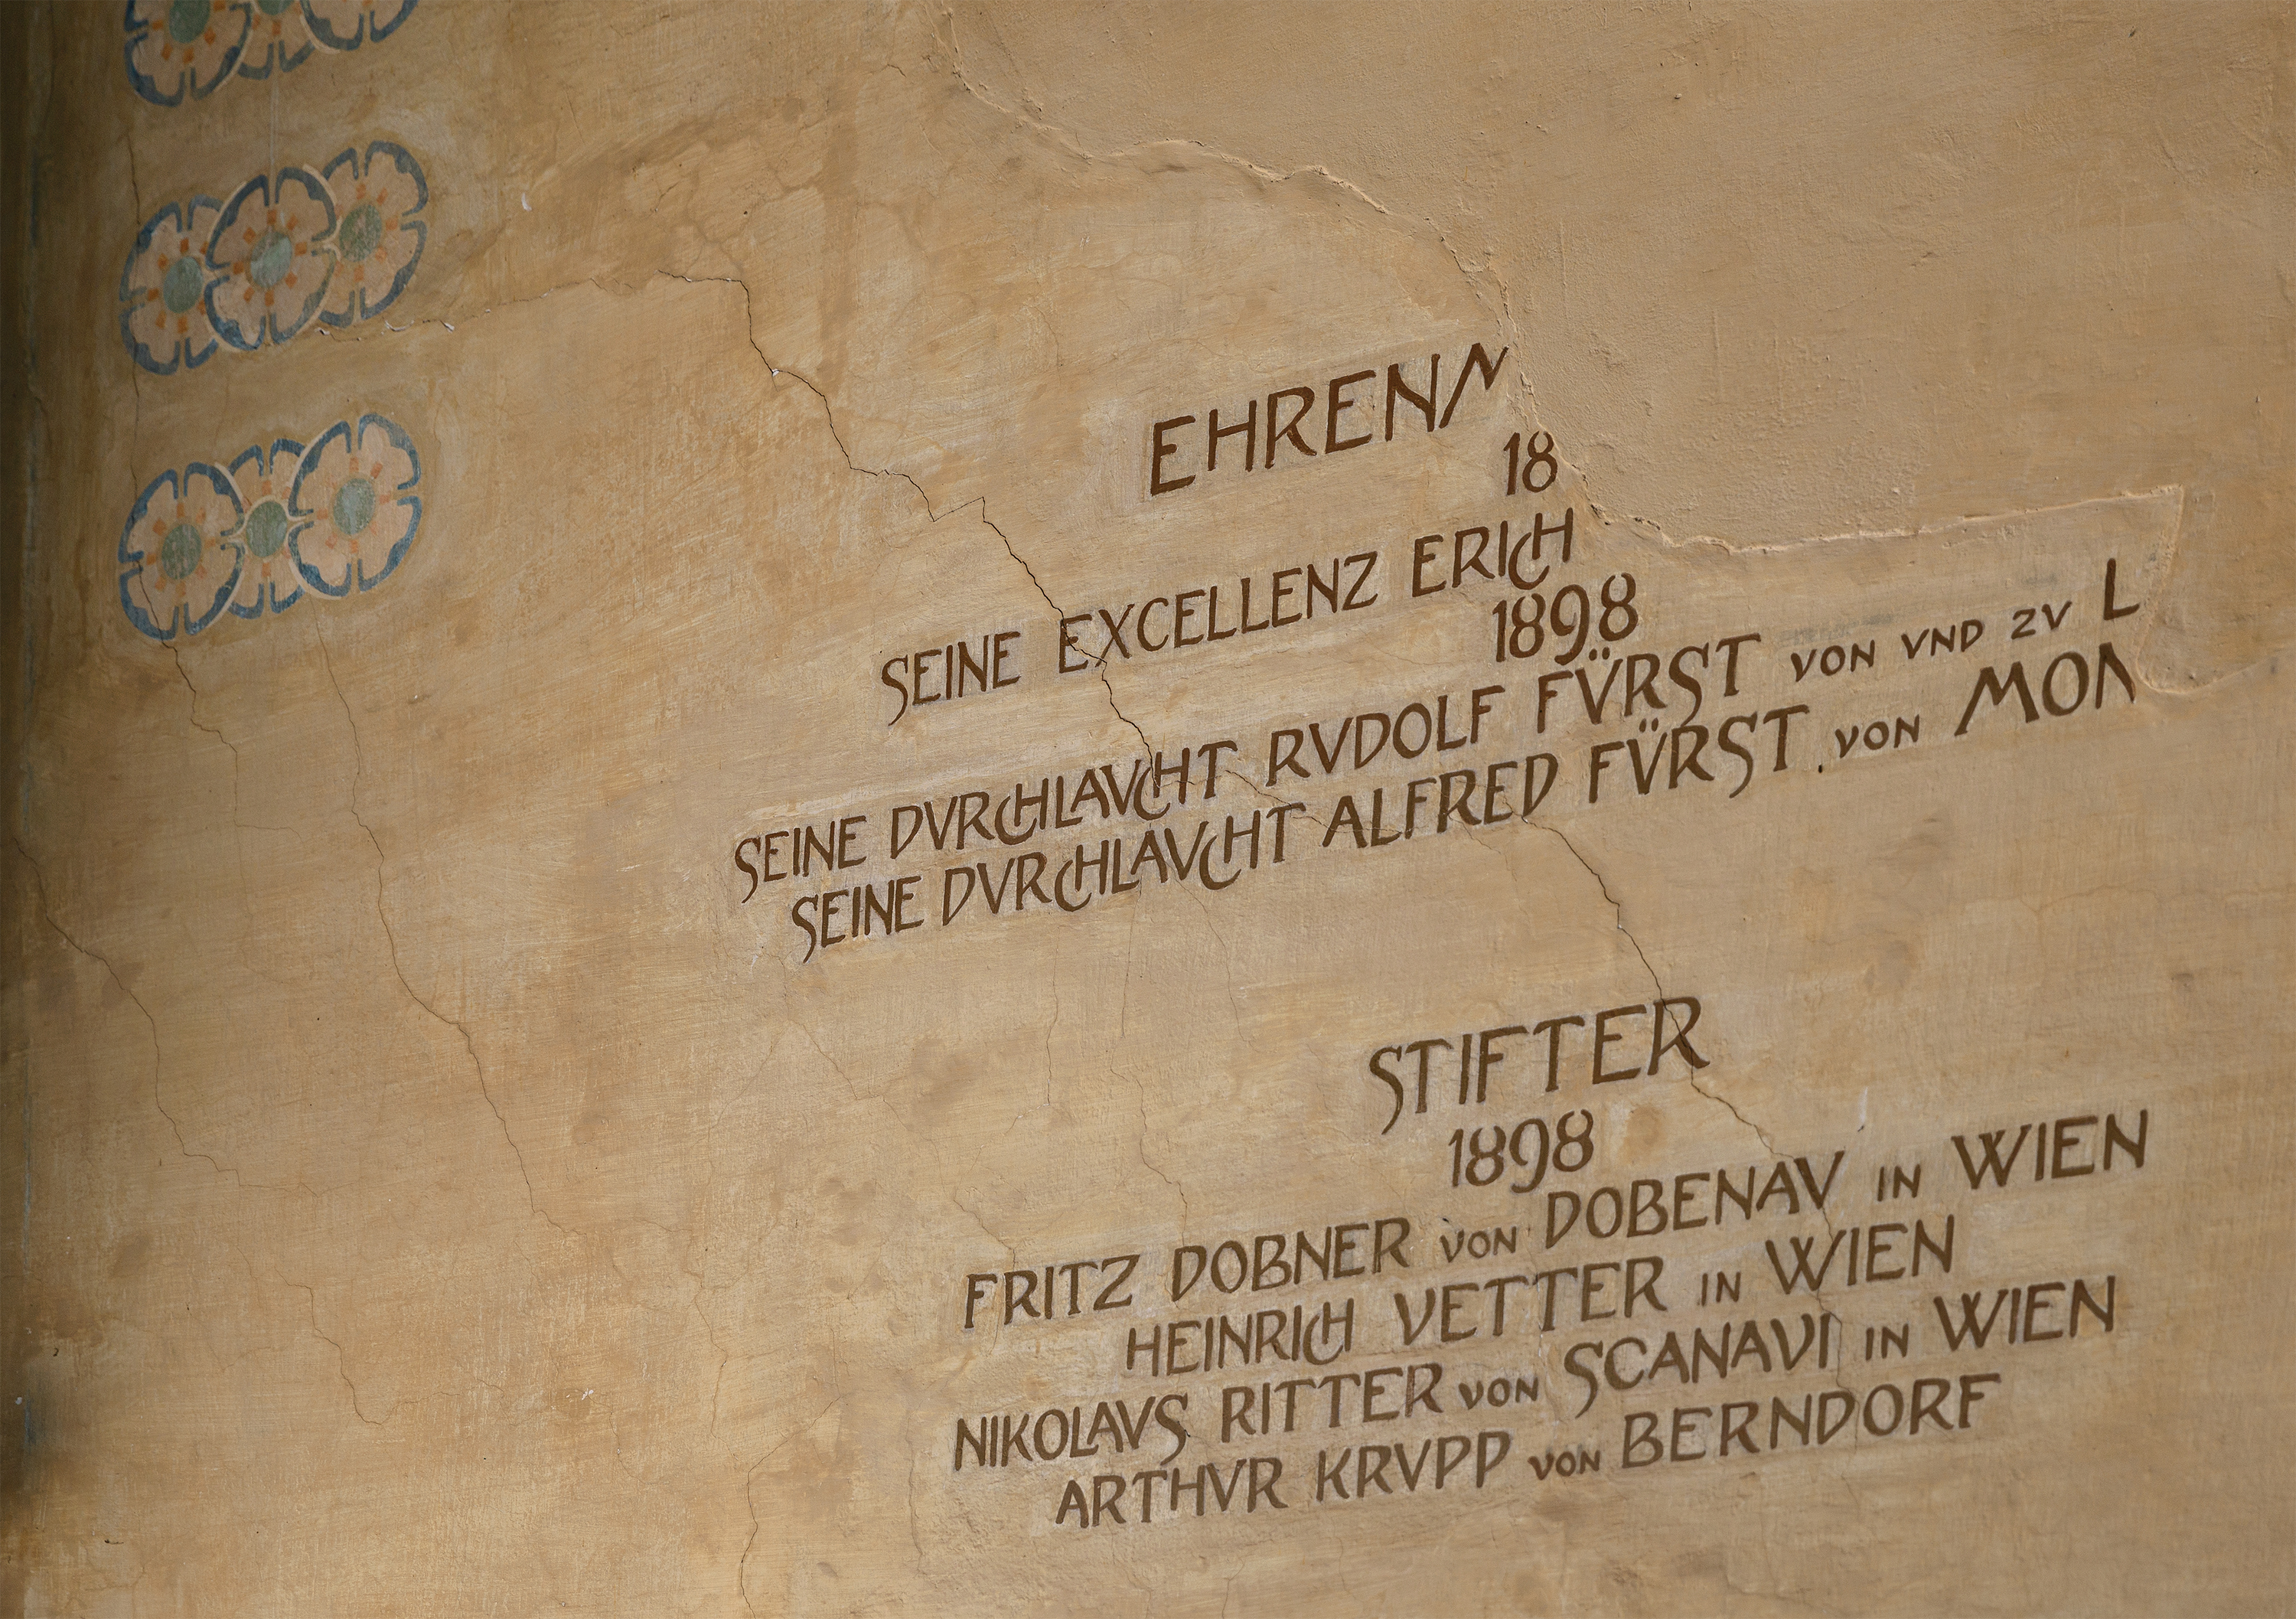 EHRENM
18
SEINE EXCELLENZ ERICH
1898
SEINE DVRCHLAVCHT RVDOLF FÜRST VON VND ZV L
SEINE DVRCHLAVCHT ALFRED FÜRST VON MON
STIFTER
1898
FRITZ DOBNER VON DOBENAV IN WIEN
HEINRICH VETTER IN WIEN
NIKOLAVS RITTER VON SCANAVI IN WIEN
ARTHVR KRVPP VON BERNDORF